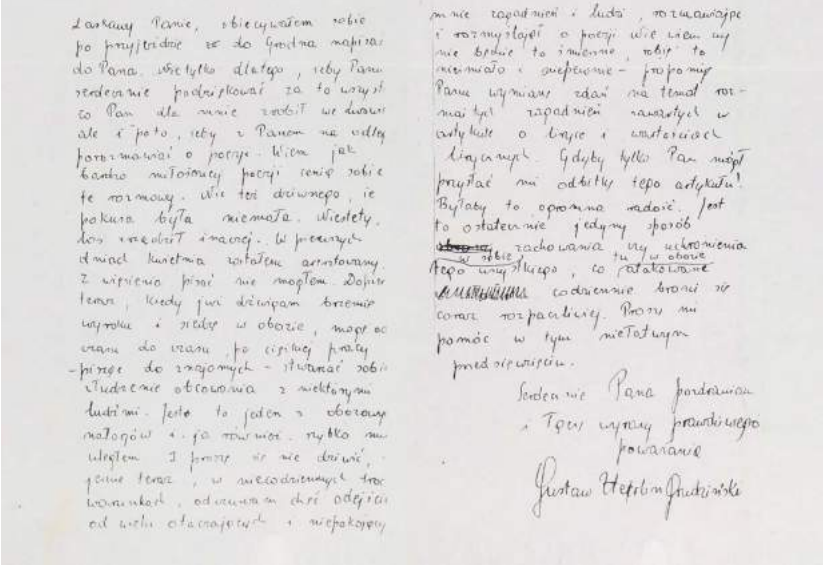 Łaskawy Panie, obiecywałem sobie
po przyjeździe do Grodna napisać
do Pana. Nie tylko dlatego, żeby Panu
serdecznie podziękować za to wszyst
co Pan dla mnie zrobił we Lwowie
ale i po to, żeby z Panem na odleg
porozmawiać o poezji. Wiem jak
bardzo miłośnicy poezji cenią sobie
te rozmowy. Nic też dziwnego, że
pokusa była niemała. Niestety,
los zrządził inaczej. W pierwszych
dniach kwietnia zostałem aresztowany.
Z więzienia pisać nie mogłem. Dopiero
teraz, kiedy już dźwigam brzemię
wyroku i siedzę w obozie, mogę od
czasu do czasu, po ciężkiej pracy
- pisząc do znajomych - stwarzać sobie
złudzenie obcowania z niektórymi
ludźmi. Jest to jeden z obozowych
nałogów i ja również szybko mu
uległem. I proszę się nie dziwić,
teraz, w niecodziennych
warunkach, odczuwam chęć odejścia
od wielu otaczających i niepokojących
mnie zagadnień i ludzi, rozmawiając
i rozmyślając o poezji. Nie wiem czy
nie będzie to śmieszne, robię to
nieśmiało i niepewnie - proponuję
Panu wymianę zdań na temat roz-
maitych zagadnień zawartych w
artykule o liryce i wartościach
lirycznych. Gdyby tylko Pan mógł
przysłać mi odbitkę tego artykułu!
Byłaby to ogromna radość. Jest
to ostatecznie jedyny sposób
zachowania czy uchronienia
w sobie tu w obozie
tego wszystkiego, co atakowane
codziennie broni się
coraz rozpaczliwiej. Proszę mi
pomóc w tym niełatwym
przedsięwzięciu.
Serdecznie Pana pozdrawiam
i łączę wyrazy prawdziwego
poważania
Gustaw Herling Grudziński